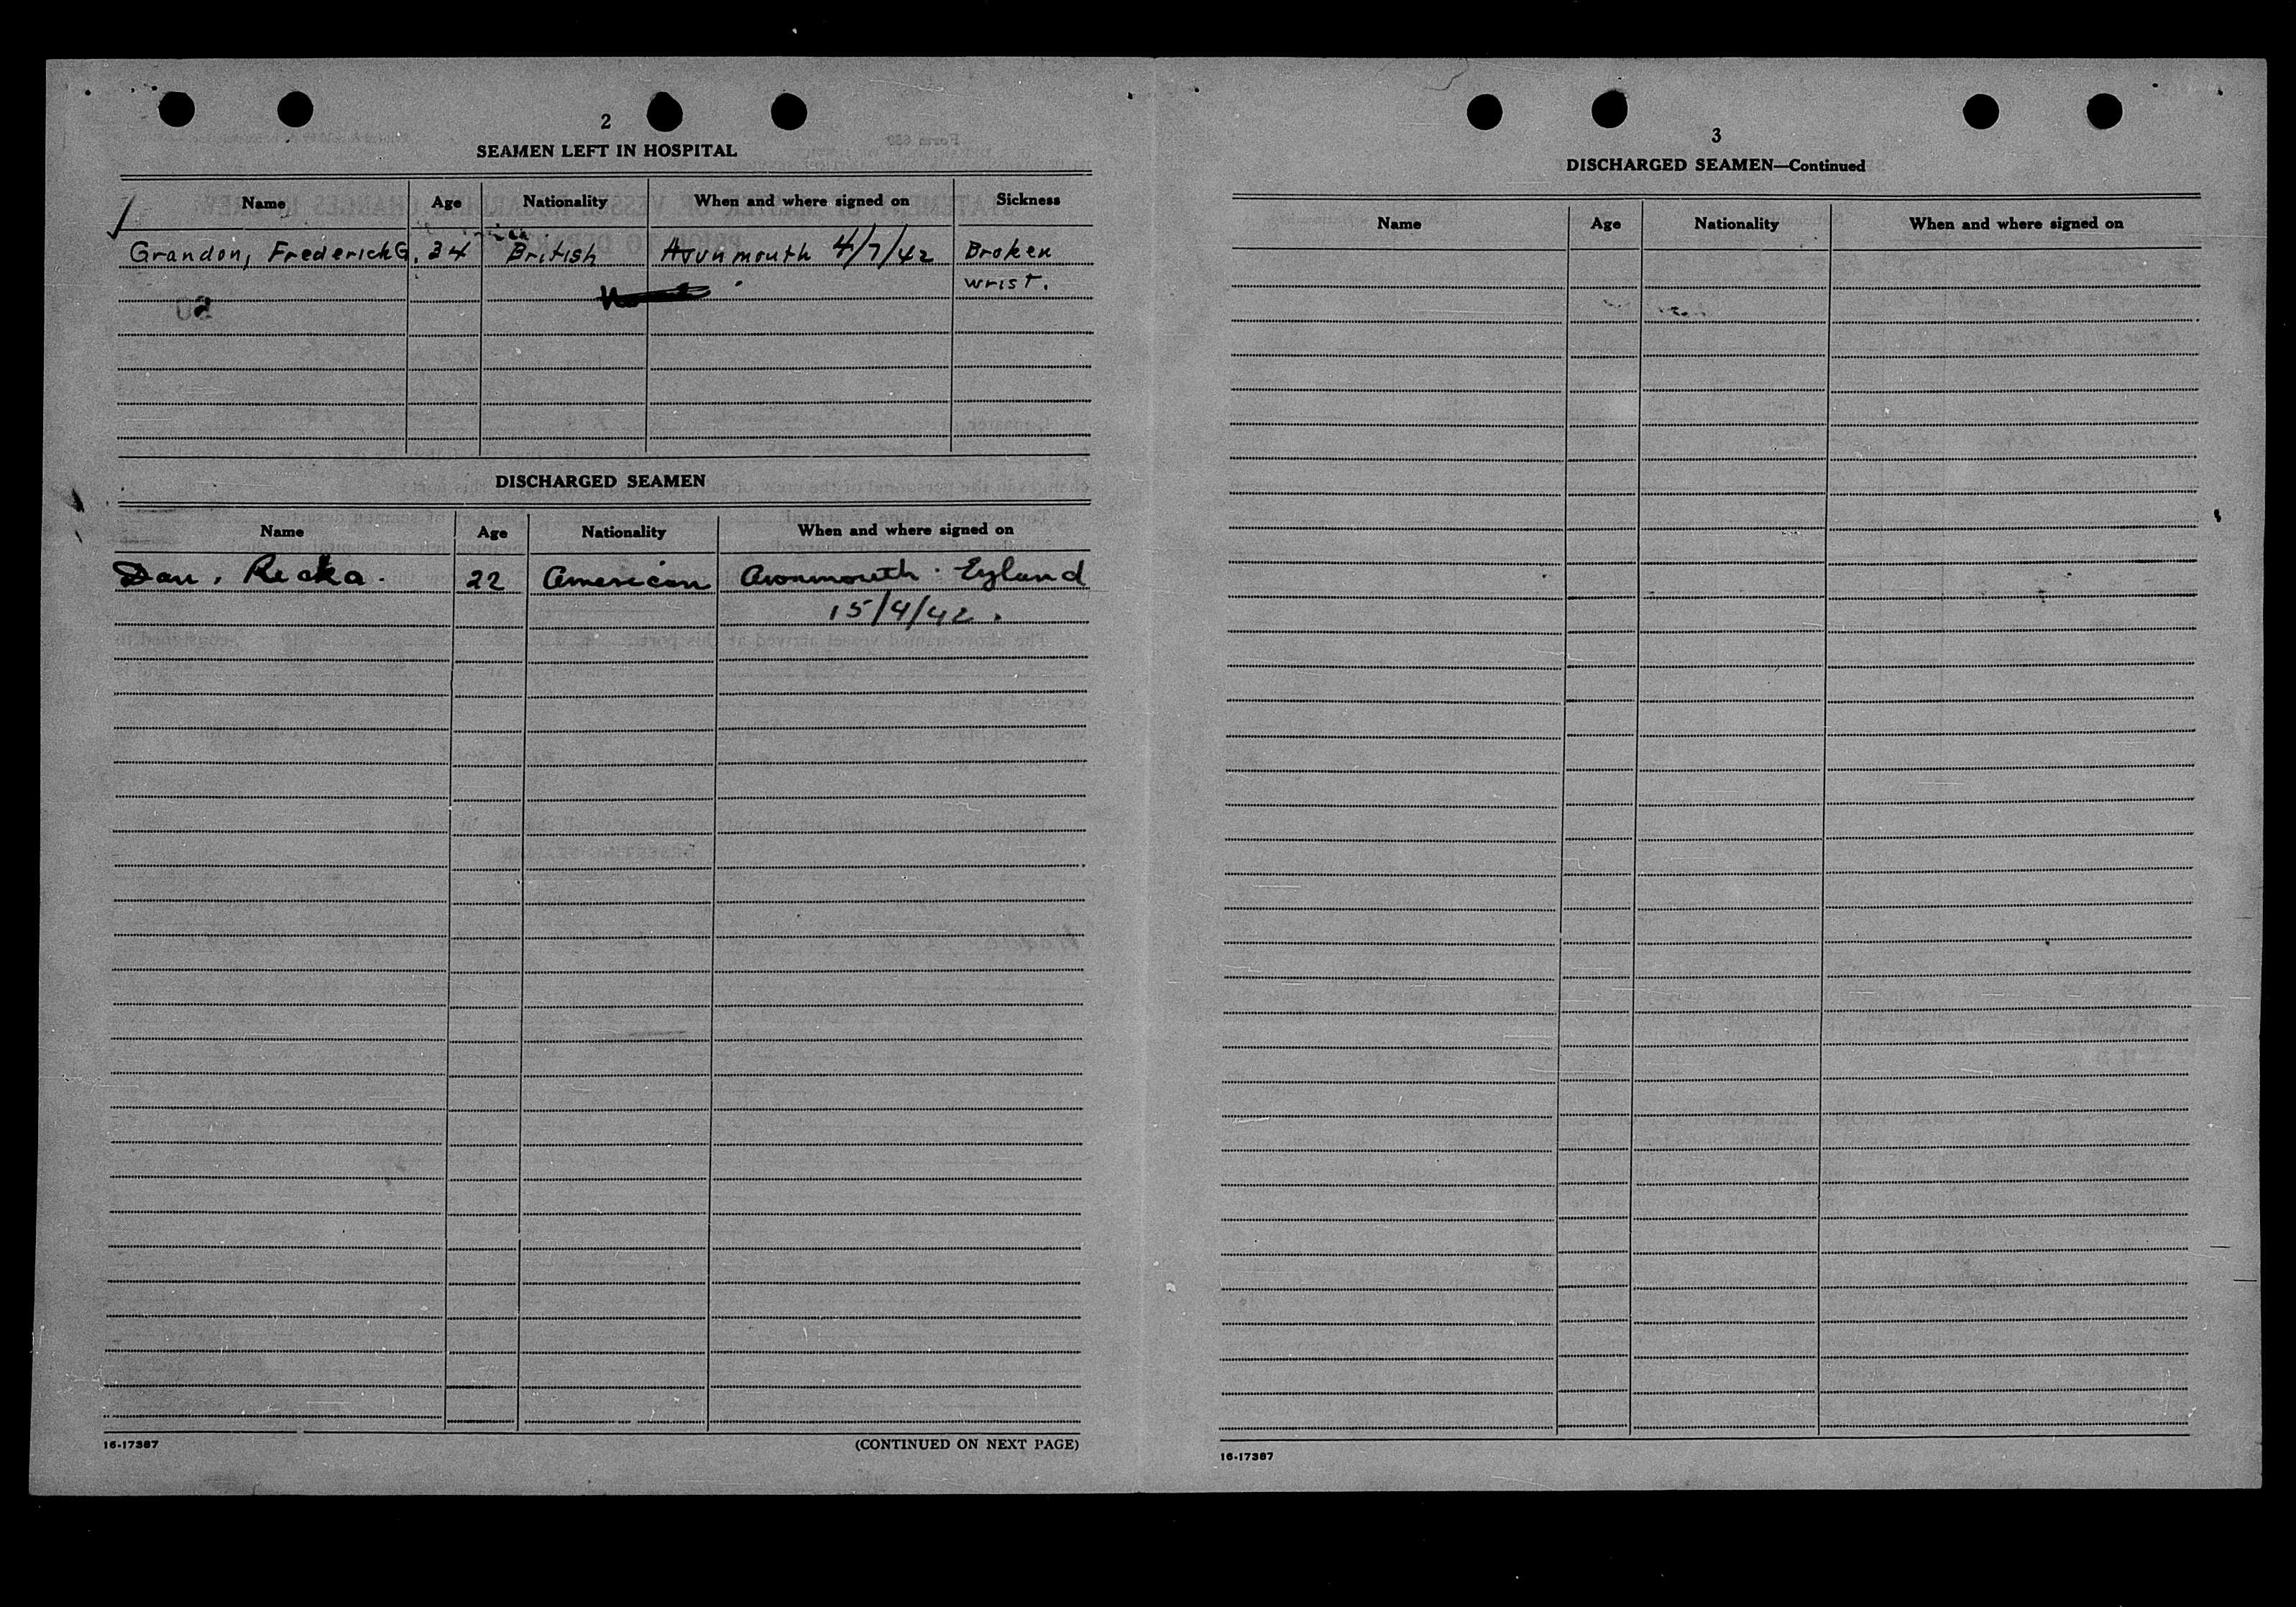 2
SEAMEN LEFT IN HOSPITAL
Name Age Nationality When and where signed on Sickness
Grandon, Frederick G. 34 British Avunmouth 4/7/42 Broken
wrist.
DISCHARGED SEAMEN
Name Age Nationality When and where signed on
Dan. Recka. 22 American Avonmouth. Eyland
15/4/42.
16-17387
(CONTINUED ON NEXT PAGE)
3
DISCHARGED SEAMEN—Continued
Name Age Nationality When and where signed on
16-17387